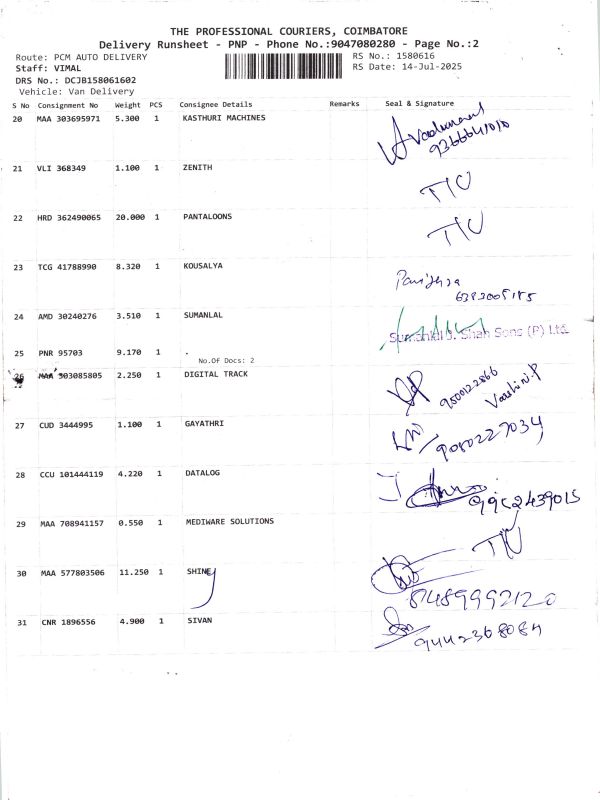 THE PROFESSIONAL COURIERS, COIMBATORE
Delivery Runsheet - PNP - Phone No.:9047080280 - Page No.:2
Route: PCM AUTO DELIVERY
RS No.: 1580616
Staff: VIMAL
RS Date: 14-Jul-2025
DRS No.: DCJB158061602
Vehicle: Van Delivery
S No Consignment No Weight PCS Consignee Details Remarks Seal & Signature
20 MAA 303695971 5.300 1 KASTHURI MACHINES
9366641010
21 VLI 368349 1.100 1 ZENITH
T/C
22 HRD 362490065 20.000 1 PANTALOONS
T/C
23 TCG 41788990 8.320 1 KOUSALYA
24 AMD 30240276 3.510 1 SUMANLAL
Sumanlal J. Shah Sons (P) Ltd.
25 PNR 95703 9.170 1 .
No.Of Docs: 2
26 MAA 303085805 2.250 1 DIGITAL TRACK
9500122866
27 CUD 3444995 1.100 1 GAYATHRI
9080227034
28 CCU 101444119 4.220 1 DATALOG
9952439015
29 MAA 708941157 0.550 1 MEDIWARE SOLUTIONS
T/C
30 MAA 577803506 11.250 1 SHINE
8489992120
31 CNR 1896556 4.900 1 SIVAN
9442368084